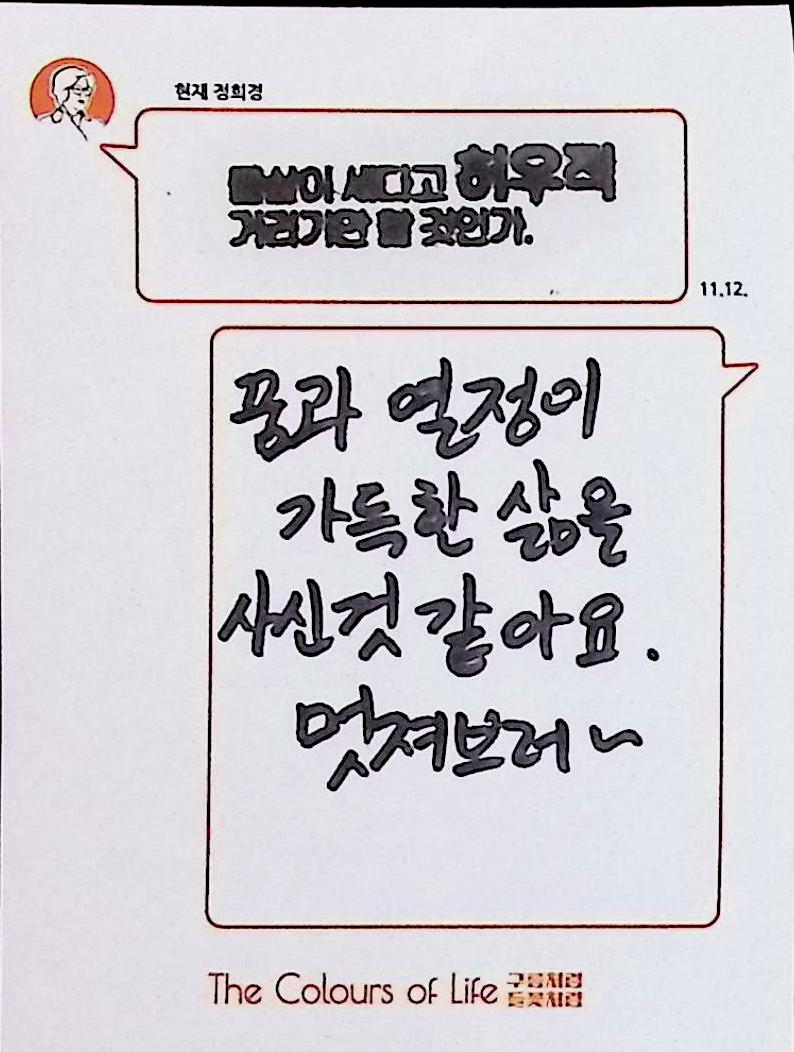 현재 정희경
물살이 세다고 허우적
거리기만 할 것인가.
11.12.
꿈과 열정이
가득한 삶을
사신것 같아요.
멋져브러~
The Colours of Life 구름처럼
들꽃처럼